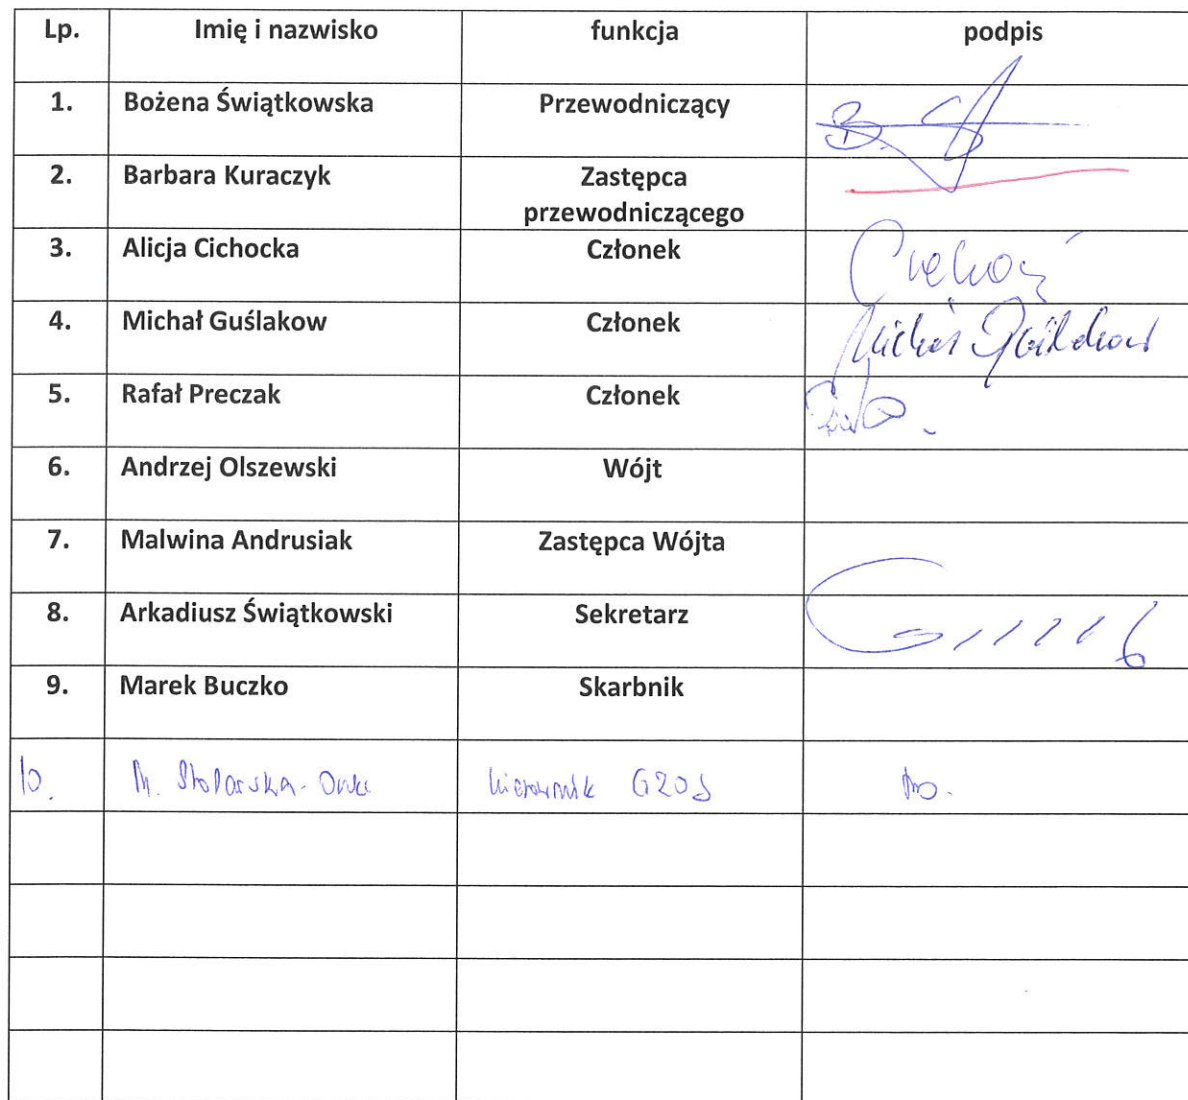 Lp. Imię i nazwisko funkcja podpis
1. Bożena Świątkowska Przewodniczący
2. Barbara Kuraczyk Zastępca
przewodniczącego
3. Alicja Cichocka Członek
4. Michał Guślakow Członek
5. Rafał Preczak Członek
6. Andrzej Olszewski Wójt
7. Malwina Andrusiak Zastępca Wójta
8. Arkadiusz Świątkowski Sekretarz
9. Marek Buczko Skarbnik
10. M. kierownik GZOS